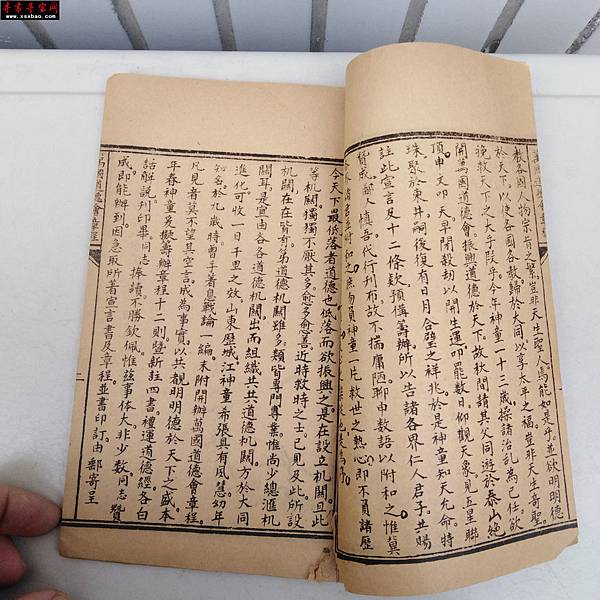 寻宝寻宝网
www.xsxbao.com
教各國人物宗旨之繁豈非天生聖人焉能如是乎並欲明明德
於天下以使各國各教歸於大同以享太平之福豈非天生奇聖
挽救天下之大手段乎今年神童一十三歲採諸治亂為己任欲
開萬國道德會振興道德於天下故秋間請其父同遊於泰山絕
頂申文叩天早開殺劫以開生運叩罷數日仰觀天象見五星聯
珠聚於東井嗣後復有日月合璧之祥兆於是神童知天允命特
註此宣言及十二條欵預備籌辦所以告諸各界仁人君子共賜
贊成鄙人慎吾代行刊布故不揣庸陋聊申數語以附和之惟冀
神童一片救世之熱心即不負諸歷
今天下最低落者道德也低落而欲振興之是在設立機關且此
等机關獨獨不厭其多愈多愈善近時救時之士已見及此所設
机關在在皆有第道德机關雖多類皆專門專業惟尚少總滙机
關耳是宜由各各道德机關出而組織共共道德机關方於大同
進化可收一日千里之效山東歷城江神童希張具有夙慧幼年
知名於九歲時曾手著息戰論一編末附開辦萬國道德會章程
凡見者莫不望其空言成為事實以共覩明明德於天下之盛本
年春神童父擬籌辦章程十二則暨新註四書禮運道德經各白
話解説刋印畢同志捧讀不勝欽佩惟兹事体大非少數同志贊
成即能辦到因急取所著宣言書及章程並書印訂由郵寄呈
萬國道德會章程
二